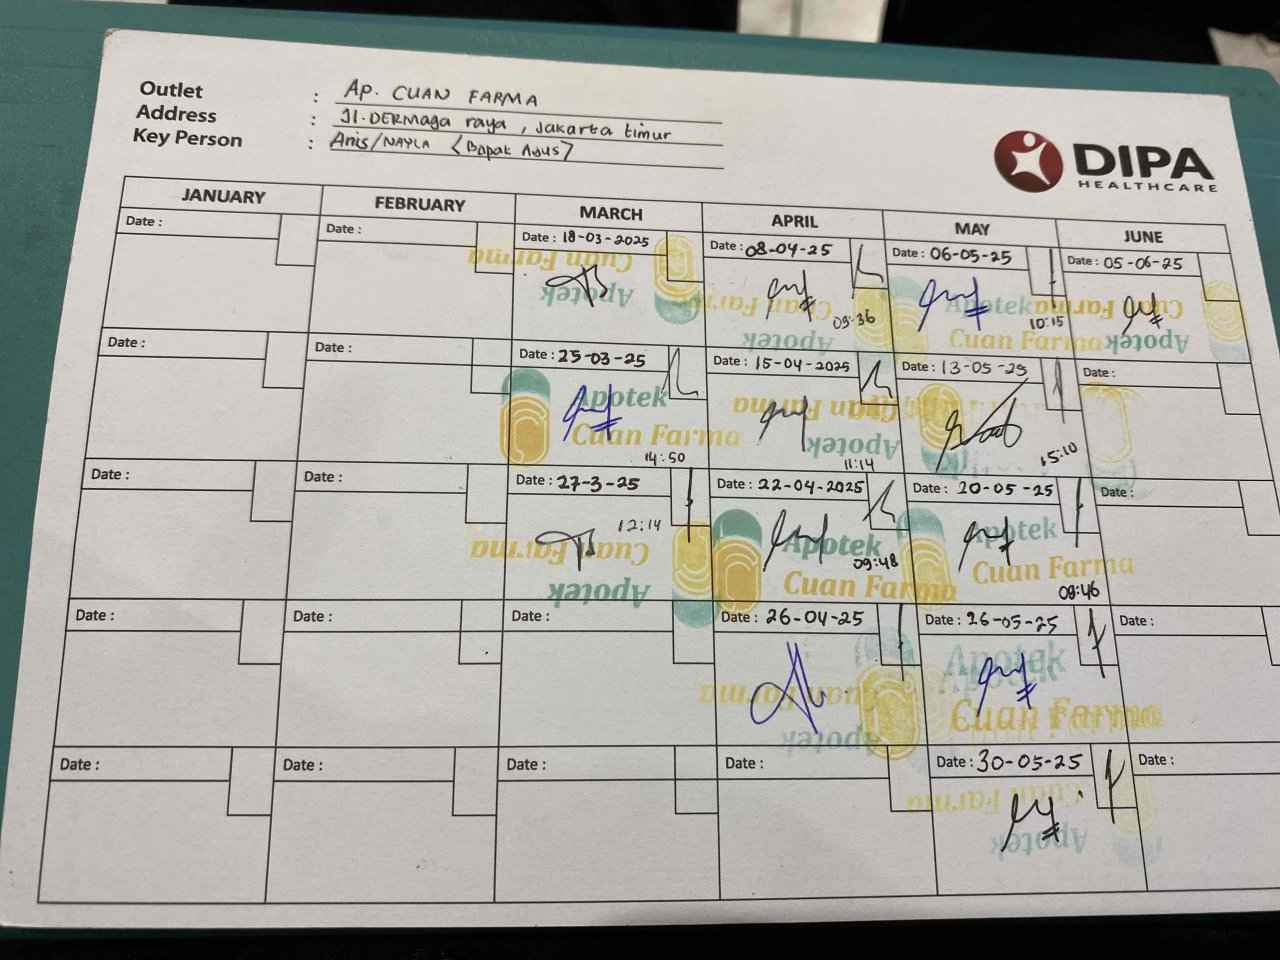 Outlet : Ap. CUAN FARMA
Address : Jl. DERMAga raya, Jakarta timur
Key Person : Anis/NAYLA (Bapak Agus)
DIPA
HEALTHCARE
JANUARY FEBRUARY MARCH APRIL MAY JUNE
Date : Date : Date : 18-03-2025 Date : 08-04-25 Date : 06-05-25 Date : 05-06-25
Apotek Cuan Farma Apotek Cuan Farma Apotek Cuan Farma Apotek Cuan Farma
09:36 10:15
Date : Date : Date : 25-03-25 Date : 15-04-2025 Date : 13-05-25 Date :
Apotek Cuan Farma Apotek Cuan Farma
14:50 11:14 15:10
Date : Date : Date : 27-3-25 Date : 22-04-2025 Date : 20-05-25 Date :
12:14
Apotek Cuan Farma Apotek Cuan Farma Apotek Cuan Farma
09:48 09:46
Date : Date : Date : Date : 26-04-25 Date : 26-05-25 Date :
Apotek Cuan Farma Apotek Cuan Farma
Date : Date : Date : Date : Date : 30-05-25 Date :
Apotek Cuan Farma